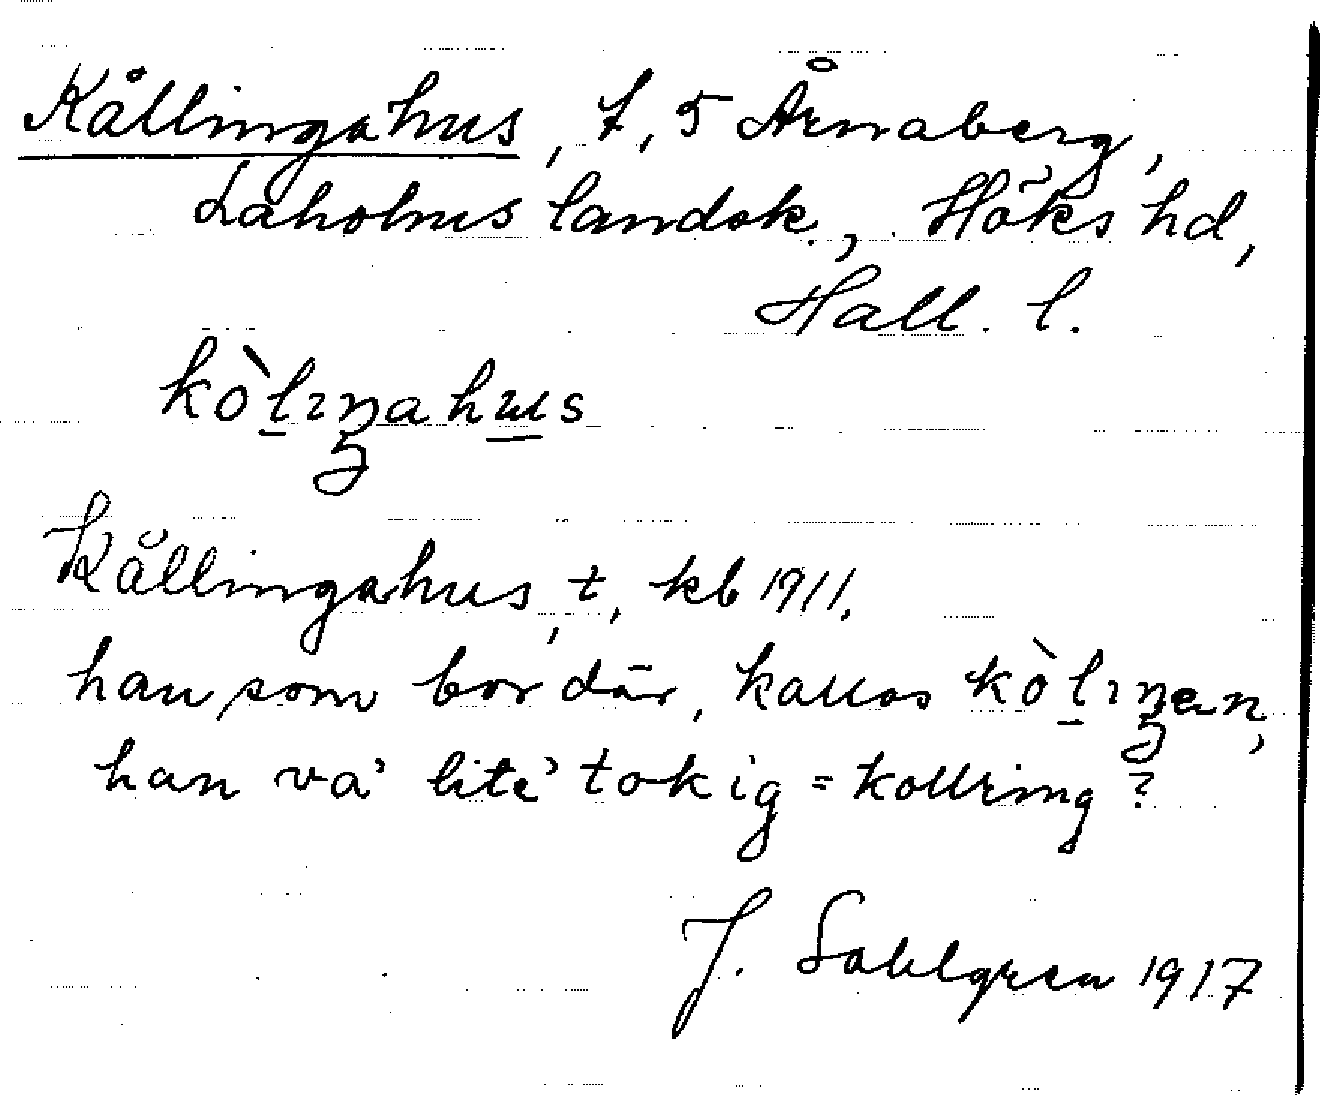 Kållingahus, t, 5 Årnaberg,
Laholms landsk., Höks hd,
Hall. l.
kòlıŋahus
Kållingahus, t, kb 1911.
han som bor där, kallas kòlıŋen,
han va' lite' tokig = kollring?
J. Sahlgren 1917